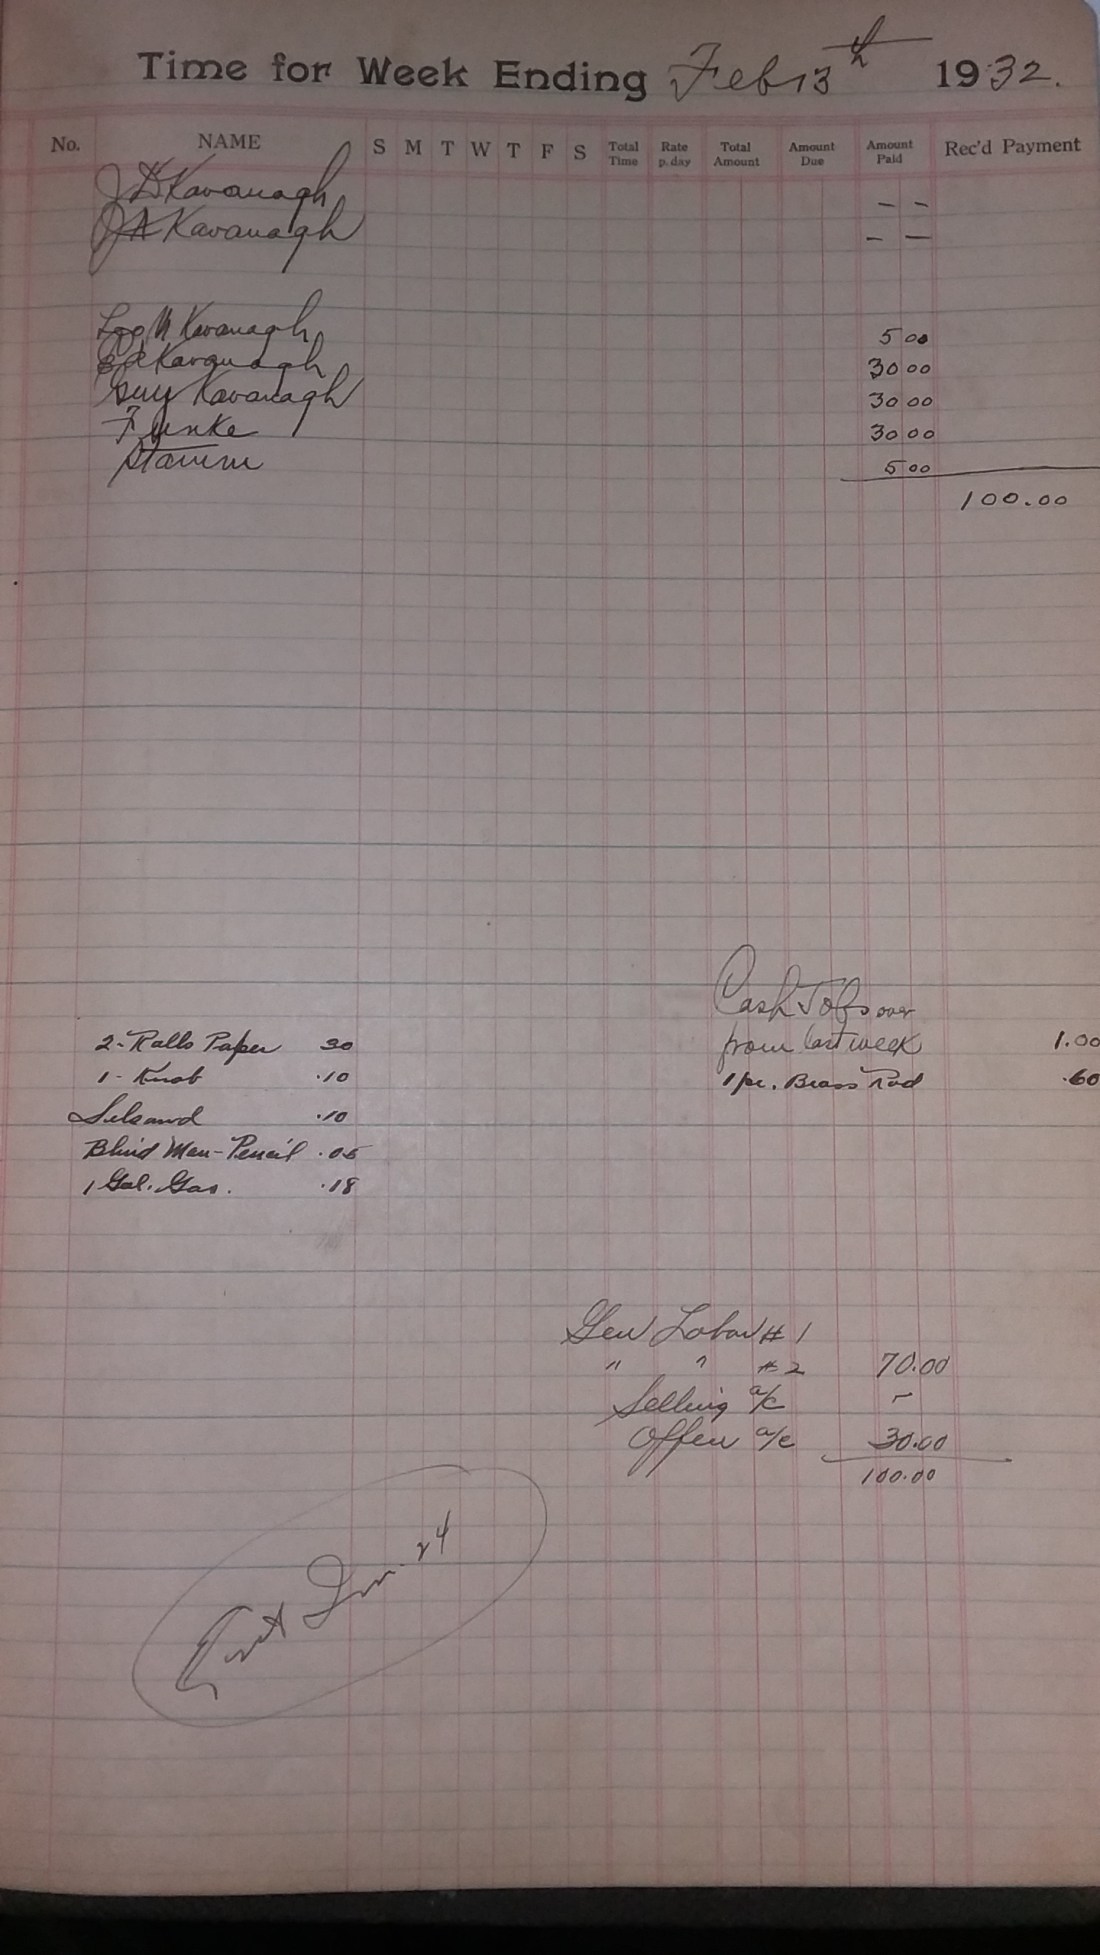 Time for Week Ending Feb 13th 1932.
No. NAME S M T W T F S Total Time Rate p. day Total Amount Amount Due Amount Paid Rec'd Payment
J D Kavanagh - -
J A Kavanagh - -
Leo M Kavanagh 5 00
Ed Kavanagh 30 00
Guy Kavanagh 30 00
Funke 30 00
Stamm 5 00
100.00
Cash Jobs over
from last week 1.00
1 pr. Brass Rod .60
2 - Rolls Paper 30
1 - Knob .10
.10
Blind Man - Pencil .05
1 Gal. Gas. .18
Gen Labor # 1
" " # 2 70.00
Selling a/c -
Office a/c 30.00
100.00
24